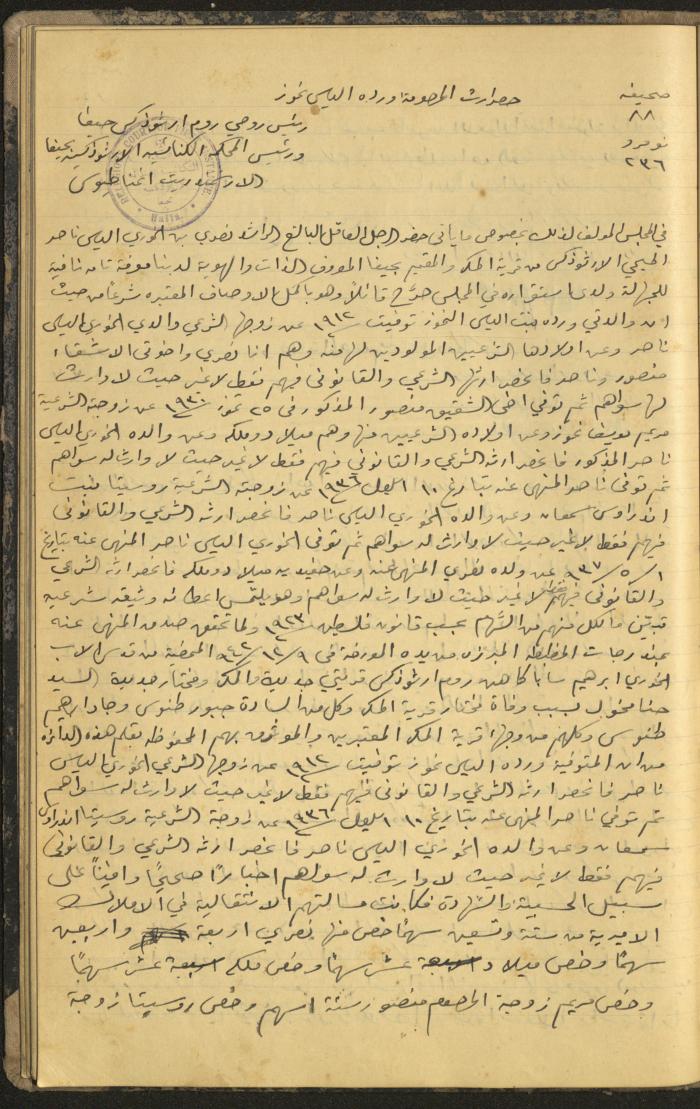 صحيفه
٨٨
نومرو
٢٣٦
حصر ارث المرحومة ورده الياس نموز
رئيس روحي روم ارثوذكس حيفا
ورئيس المحكمة الكنائسية الارثوذكسية بحيفا
الارشمندريت اغناطيوس
Haifa
في المجلس المؤلف لذلك بخصوص ما يأتي حضر الرجل العاقل البالغ الراشد نصري بن الخوري الياس ناصر
المسيحي الارثوذكسي من قرية المكر والمقيم بحيفا المعروف الذات والهوية لدينا معرفة تامه نافية
للجهالة ولدى استقراره في المجلس صرّح قائلاً وهو باكمل الاوصاف المعتبره شرعاً من حيث
ان والدتي ورده بنت الياس النموز توفيت سنة ١٩١٢ عن زوجها الشرعي والدي الخوري الياس
ناصر وعن اولادها الشرعيين المولودين لها منه وهم انا نصري واخوتي الاشقاء
منصور وناصر فانحصر ارثها الشرعي والقانوني فيهم فقط لا غير حيث لا وارث
لها سواهم ثم توفي اخي الشقيق منصور المذكور في ٢٥ تموز عن زوجته الشرعية
مريم يوسف نموز وعن اولاده الشرعيين منها وهم ميلاد وملكه وعن والده الخوري الياس
ناصر المذكور فانحصر ارثه الشرعي والقانوني فيهم فقط لا غير حيث لا وارث له سواهم
ثم توفي ناصر المنهى عنه بتاريخ ١٠ ايلول سنة ١٩٣٦ عن زوجته الشرعية روسيتا بنت
اندراوس سمعان وعن والده الخوري الياس ناصر فانحصر ارثه الشرعي والقانوني
فيهم فقط لا غير حيث لا وارث له سواهم ثم توفي الخوري الياس ناصر المنهى عنه بتاريخ
١ / ٥ / ٩٣٧ عن ولده نصري المنهى عنه وعن حفيديه ميلاد وملكه فانحصر ارثه الشرعي
والقانوني فيهم فقط لا غير حيث لا وارث له سواهم وهو يلتمس اعطائه وثيقة شرعية
تبين ما لكل منهم من السهام بحسب قانون فلسطين سنة ١٩٢٣ ولما تحقق صدق المنهى عنه
المبرزه من يده المورخة في ٩ / ١٢ / ٩٤٢ الممضية من قدس الاب
الخوري ابرهيم سابا كاهن روم ارثوذكس قريتي جديدة والمكر ومختار جديدة السيد
حنا مخول بسبب وفاة مختار قرية المكر وكل من السادة جبور طنوس وجاد ابرهيم
طنوس وكلهم من وجهاء قرية المكر المعتبرين والموثوق بهم المحفوظه بقلم هذه الدائرة
من ان المتوفية ورده الياس نموز توفيت سنة ١٩١٢ عن زوجها الشرعي الخوري الياس
ناصر فانحصر ارثه الشرعي والقانوني فيهم فقط لا غير حيث لا وارث له سواهم
ثم توفي ناصر المنهى عنه بتاريخ ١٠ ايلول سنة ١٩٣٦ عن زوجته الشرعية روسيتا اندراوس
سمعان وعن والده الخوري الياس ناصر فانحصر ارثه الشرعي والقانوني
فيهم فقط لا غير حيث لا وارث له سواهم اخباراً صحيحاً وافياً على
سبيل الحسبية والشهادة فكانت مسالتهم الانتقالية في الاملاك
الاميرية من ستة وتسعين سهماً خص منها نصري اربعة واربعين
سهماً وخص ميلاد عشر سهماً وخص ملكه عشر سهماً
وخص مريم زوجة المرحوم منصور ستة اسهم وخص روسيتا زوجة